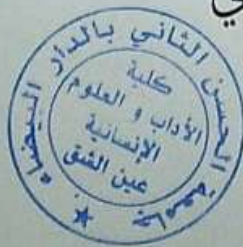 ي
جامعة الحسن الثاني بالدار البيضاء
كلية
الآداب و العلوم
الإنسانية
عين الشق